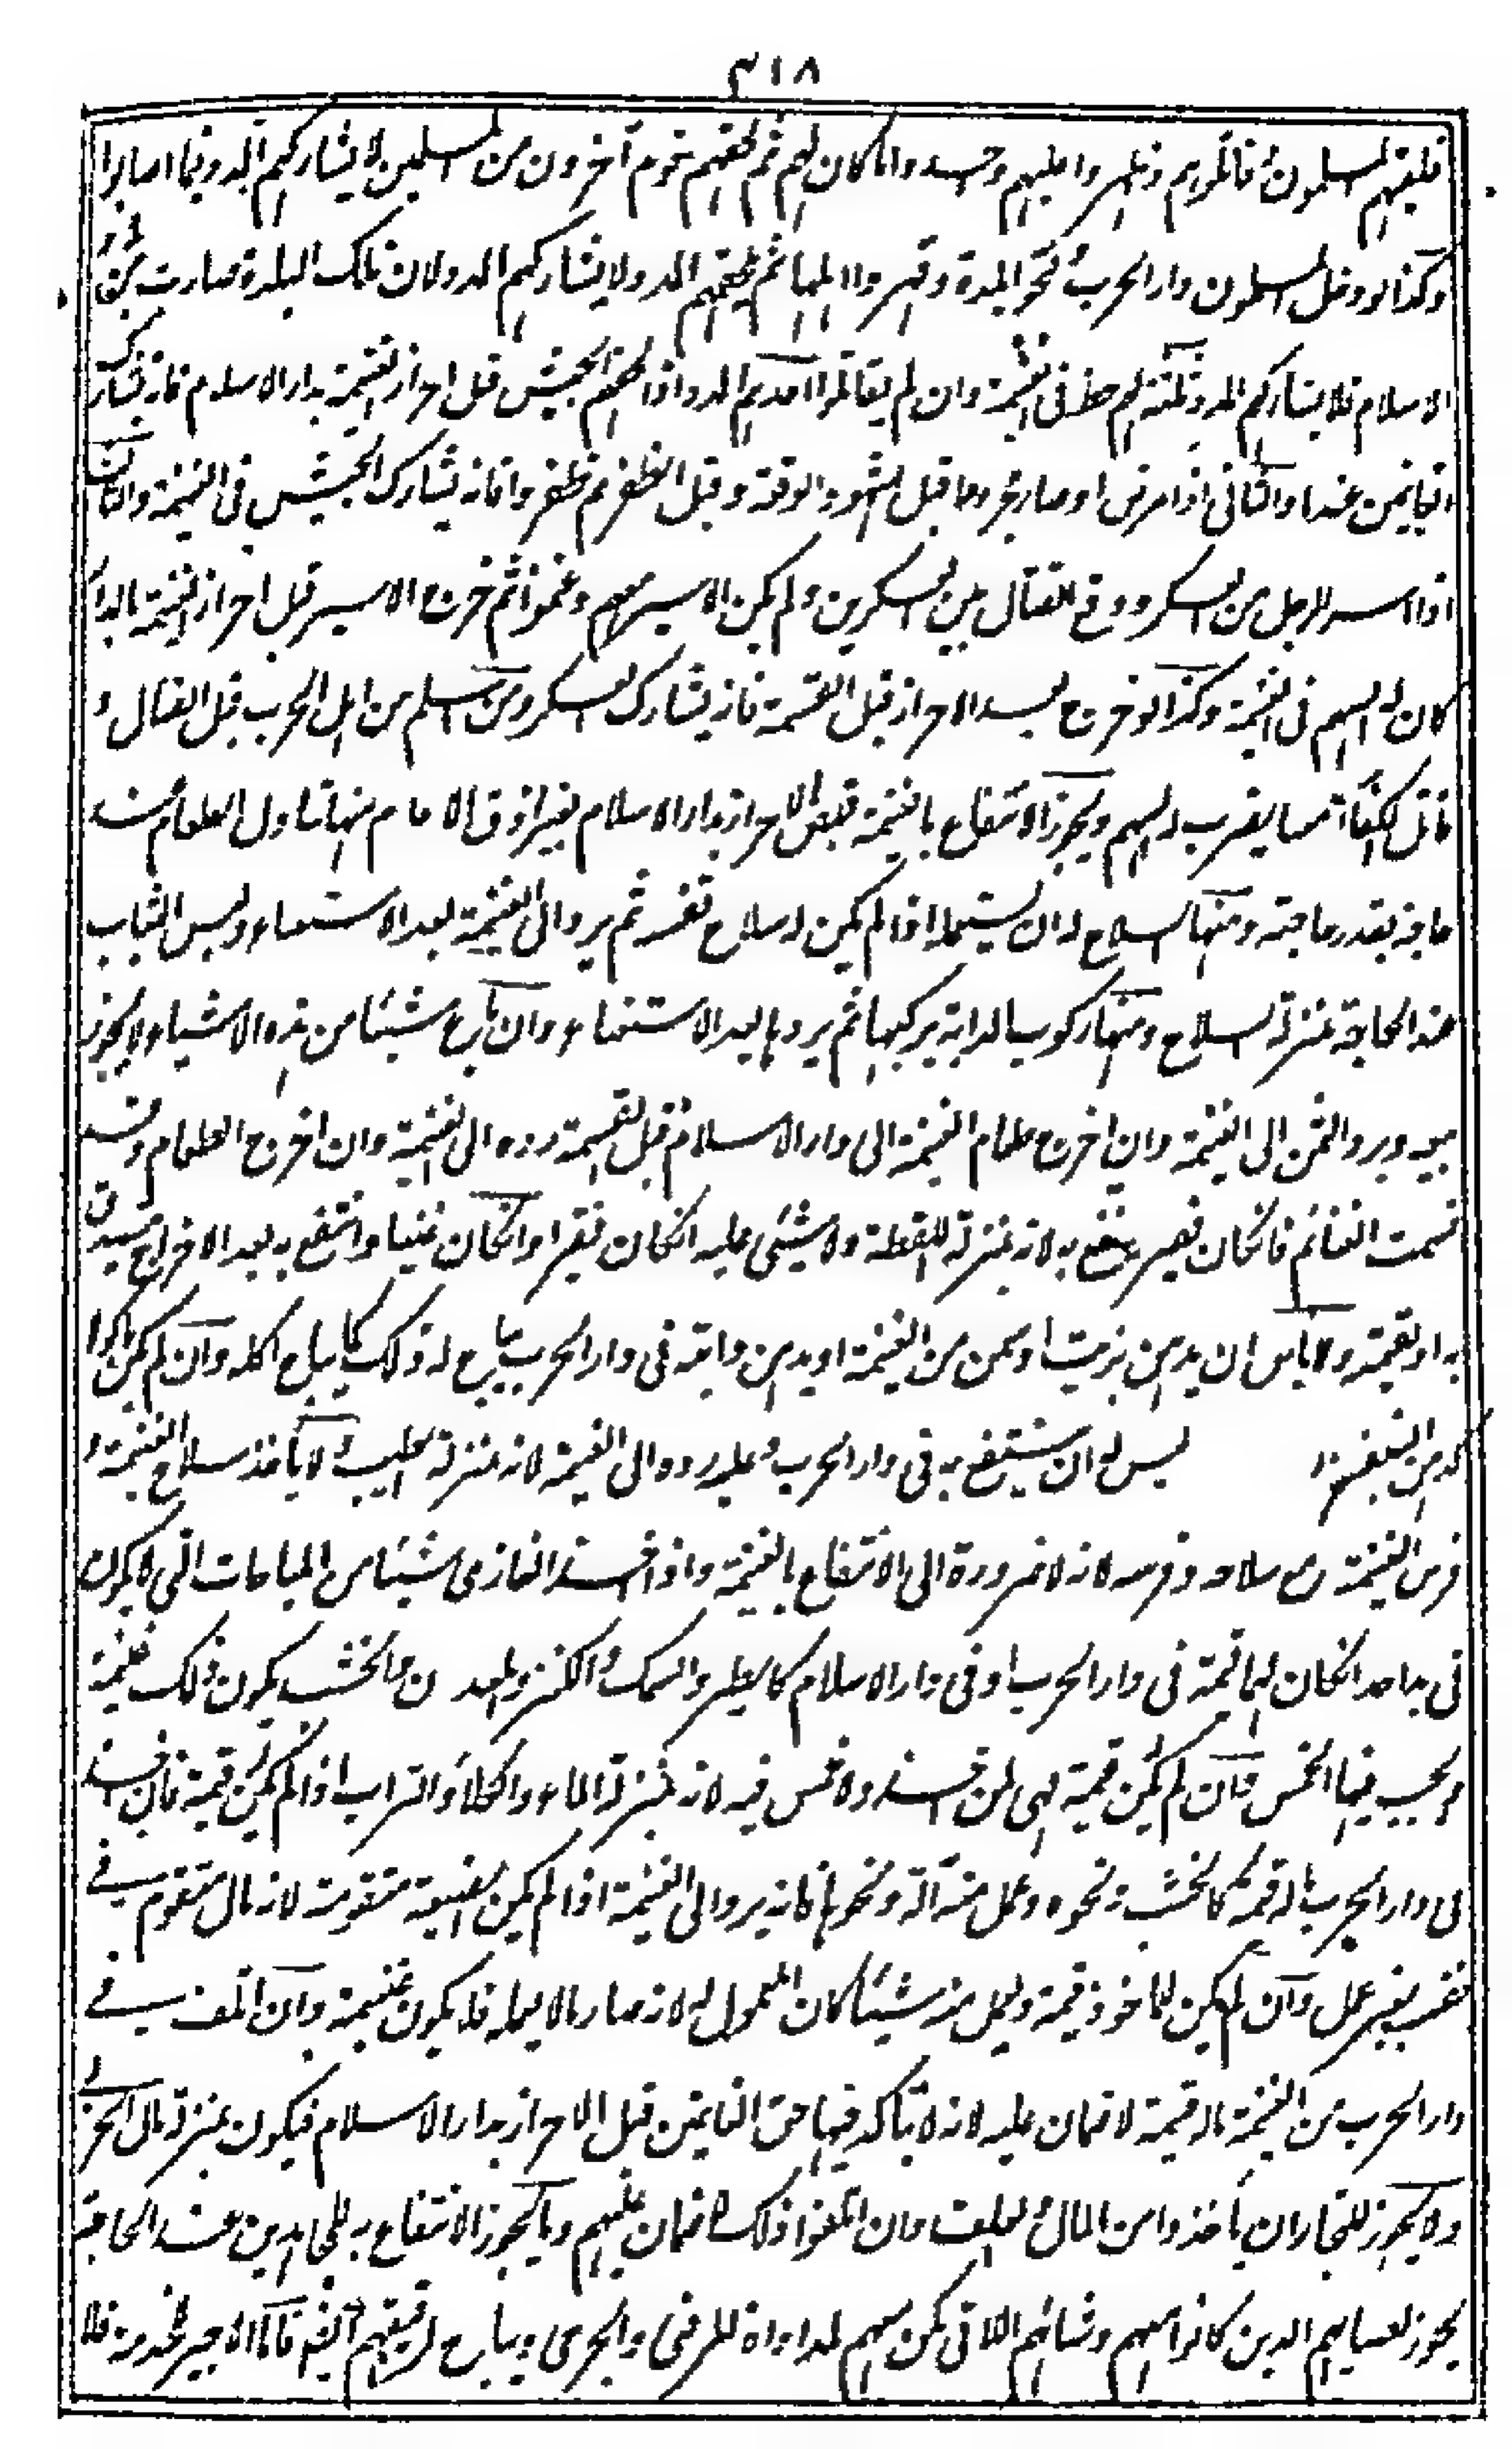 ٣١٨
فلقيهم المسلمون فقاتلوهم وظهروا عليهم وحده واما كان لهم ثم لحقهم قوم آخرون من المسلمين لا يشاركهم المدد فيما اصابوا
وكذا لو دخل المسلمون دار الحرب نحو البلدة وقهروا اهلها ثم لحقهم المدد لا يشاركهم المدد لان تلك البلدة صارت من دار
الاسلام فلا يشاركهم المدد وثلثة لهم حظ فى الغنيمة وان لم يقاتلوا احدهم المدد واذا لحقهم الجيش قبل احراز الغنيمة بدار الاسلام فانه يشارك
الغانمين عندنا والثانى اذا مرض او صار مجروحا قبل شهود الوقعة وقبل الظفر ثم ظفروا فانه يشارك الجيش فى الغنيمة والثالث
اذا اسر الرجل من العسكر ووقع القتال بين العسكرين ولم يكن الاسير معهم وغنموا ثم خرج الاسير قبل احراز الغنيمة بالدار
كان له السهم فى الغنيمة وكذا لو خرج بعد الاحراز قبل القسمة فانه يشارك العسكر ومن اسلم من اهل الحرب قبل القتال و
قاتل الكفار معنا يضرب له السهم ويجوز الانتفاع بالغنيمة قبل الاحراز بدار الاسلام بغير اذن الامام منها تناول الطعام عند
حاجة بقدر حاجته ومنها السلاح له ان يستعمله اذا لم يكن له سلاح نفسه ثم يرد الى الغنيمة بعد الاستغناء ولبس الثياب
عند الحاجة بمنزلة السلاح ومنها ركوب الدابة يركبها ثم يردها بعد الاستغناء وان باع شيئا من هذه الاشياء لا يجوز
بيعه ويرد الثمن الى الغنيمة وان اخرج طعام الغنيمة الى دار الاسلام قبل القسمة رده الى الغنيمة وان اخرج الطعام وقد
قسمت الغنائم فانكان فقيرا ينتفع به لانه بمنزلة اللقطة ولا شيئ عليه انكان فقيرا وانكان غنيا وانتفع به بعد الاخراج تصدق
به او بقيمته ولا باس ان يدهن بزيت او سمن من الغنيمة او يدهن دابته فى دار الحرب يباح له ذلك كما يباح اكله وان لم يكن ماكولا
كدهن البنفسج ليس له ان ينتفع به فى دار الحرب وعليه رده الى الغنيمة لانه بمنزلة الطيب ولا ياخذ سلاح الغنيمة و
فرس الغنيمة مع سلاحه وفرسه لانه لا ضرورة الى الانتفاع بالغنيمة واذا اخذ الغازى شيئا من المباحات التى لا يكون
فى يد احد انكان لها قيمة فى دار الحرب او فى دار الاسلام كالطير والسمك والكنز والمعدن والخشب يكون ذلك غنيمة
ويجب فيها الخمس فان لم يكن قيمة فهى لمن اخذه ولا خمس فيه لانه بمنزلة الماء والكلاء والتراب اذا لم يكن قيمة فان اخذ
فى دار الحرب ماله قيمة كالخشب ونحوه وعمل منه آلة ونحوها فانه يرد الى الغنيمة اذا لم يكن الصنعة متقومة لانه مال متقوم فى
نفسه بغير عمل وان لم يكن للماخوذ قيمة وعمل منه شيئا كان المعمول له لانه صار مالا بعمله فلا يكون غنيمة وان اتلف فى
دار الحرب من الغنيمة ماله قيمة لا ضمان عليه لانه لا يتأكد فيها حق الغانمين قبل الاحراز بدار الاسلام فيكون بمنزلة مال الحربى
ولا يجوز للتجار ان ياخذوا من المال والعلف وان اتلفوا ذلك لا ضمان عليهم وما يجوز الانتفاع به للمجاهدين عند الحاجة
يجوز لصبيانهم الذين كانوا معهم ونسائهم اللاتى يكن معهم لمداواة المرضى والجرحى ويباح لرقيقهم ايضا فاما الاجير للخدمة فلا